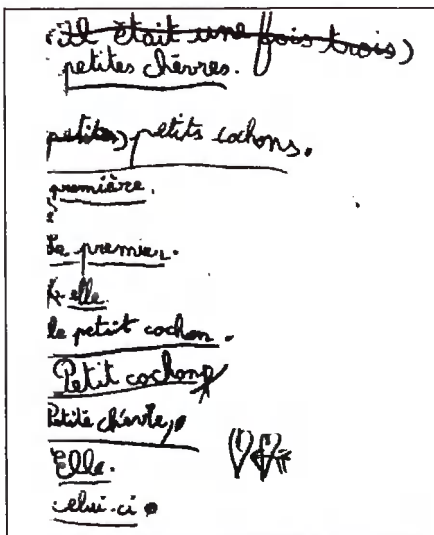 (Il était une fois trois)
petites chèvres.
petites) petits cochons.
première.
Le premier.
elle.
le petit cochon.
Petit cochon
Petite chèvre,
Elle.
celui-ci